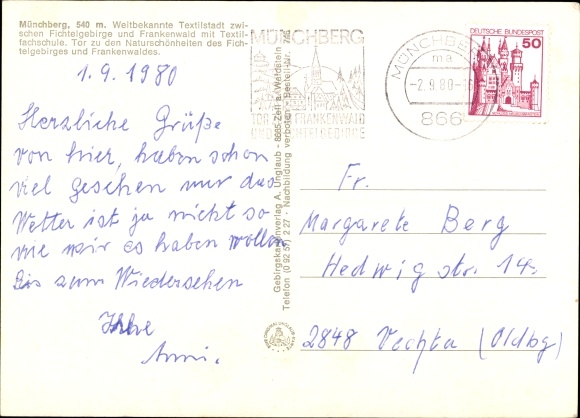 Münchberg, 540 m. Weltbekannte Textilstadt zwi-
schen Fichtelgebirge und Frankenwald mit Textil-
fachschule. Tor zu den Naturschönheiten des Fich-
telgebirges und Frankenwaldes.
1.9.1980
Herzliche Grüße
von hier, haben schon
viel gesehen nur das
Wetter ist ja nicht so
wie wir es haben wollen
Bis zum Wiedersehen
Ihre
Anni.
Gebirgskartenverlag A. Unglaub - 8665 Zell a. Waldstein
Telefon (0 92 57) 2 27 · Nachbildung verboten · Bestell-Nr.
MÜNCHBERG
TOR ZU FRANKENWALD
UND FICHTELGEBIRGE
MÜNCHBERG
ma
-2.9.80-
866
DEUTSCHE BUNDESPOST
50
Fr.
Margarete Berg
Hedwigstr. 14
2848 Vechta (Oldbg)